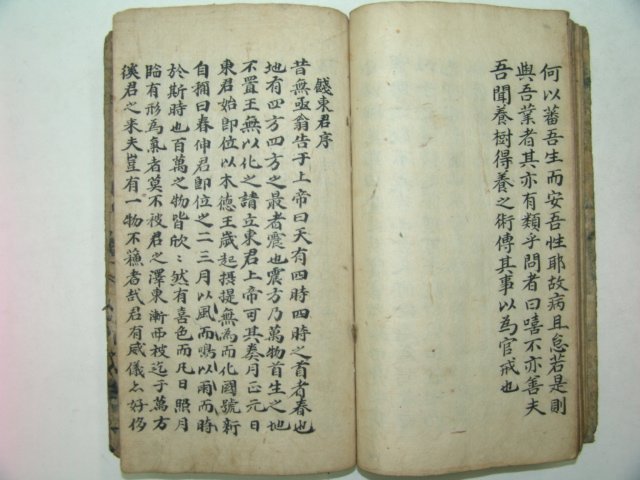 何以蕃吾生而安吾性耶故病且怠若是則
與吾業者其亦有類乎問者曰嘻不亦善夫
吾聞養樹得養之術傳其事以為官戒也
餞東君序
昔無亟翁告于上帝曰天有四時四時之首者春也
地有四方四方之最者震也震方乃萬物首生之地
不置王無以化之請立東君上帝可其奏月正元日
東君始即位以木德王歲起摂提無為而化國號新
自稱曰春伸君即位之二三月以風而鳴以雨而時
於斯時也百萬之物皆欣〻然有喜色而凡日照月
臨有形為真者莫不被君之澤東漸西被迄于萬方
徯君之来夫豈有一物不蘓者㢤君有威儀好侈